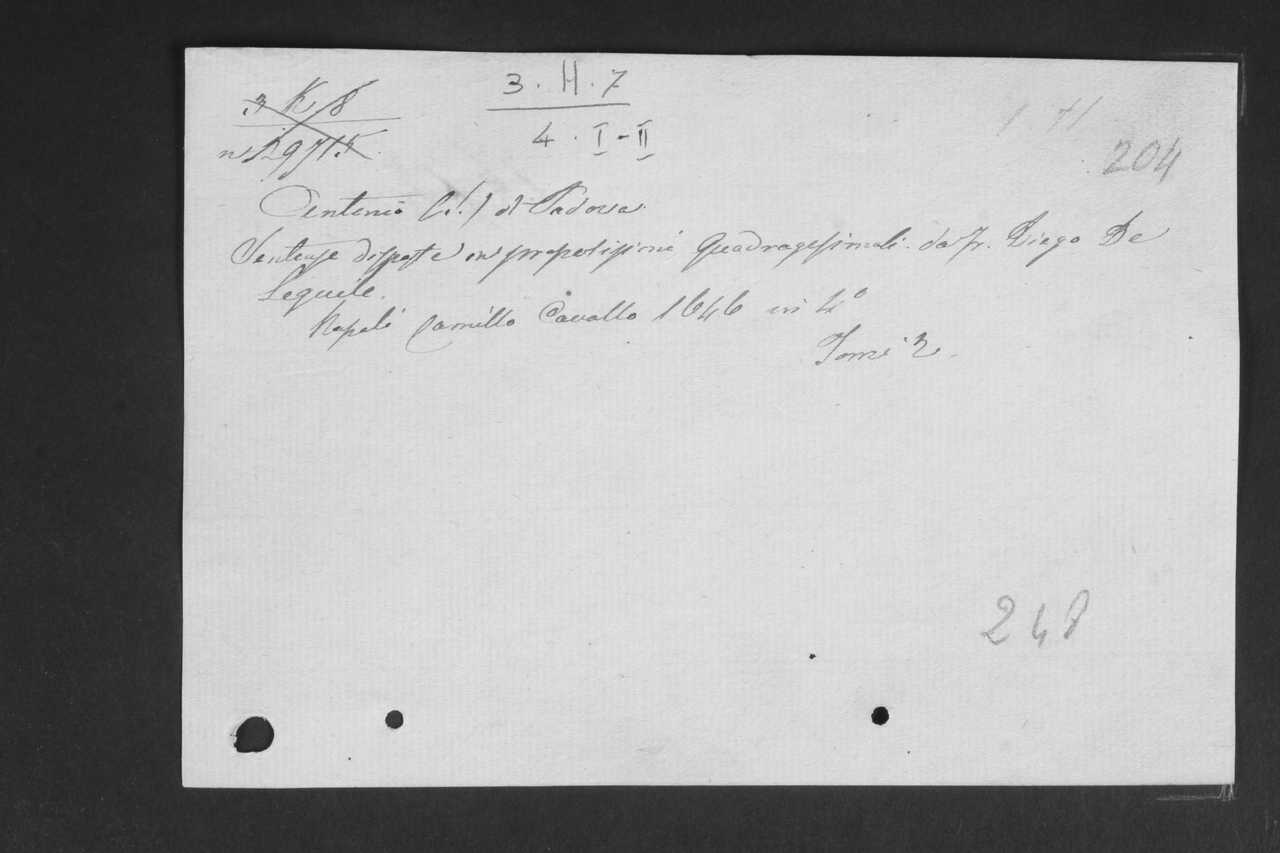 3 K 8
3. H. 7
4. I - II
204
Centenió (S.) di Padova
Sentenze disposte in proposizioni Quadragesimali da Fr. Diego De
Lequile.
Napoli Camillo Cavallo 1646 in 4º
Tomi 2.
248